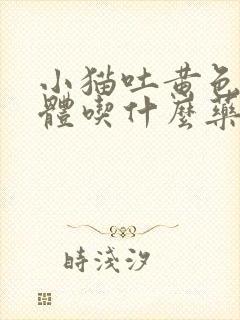 小猫吐黄色
體喫什麼藥
時淺汐